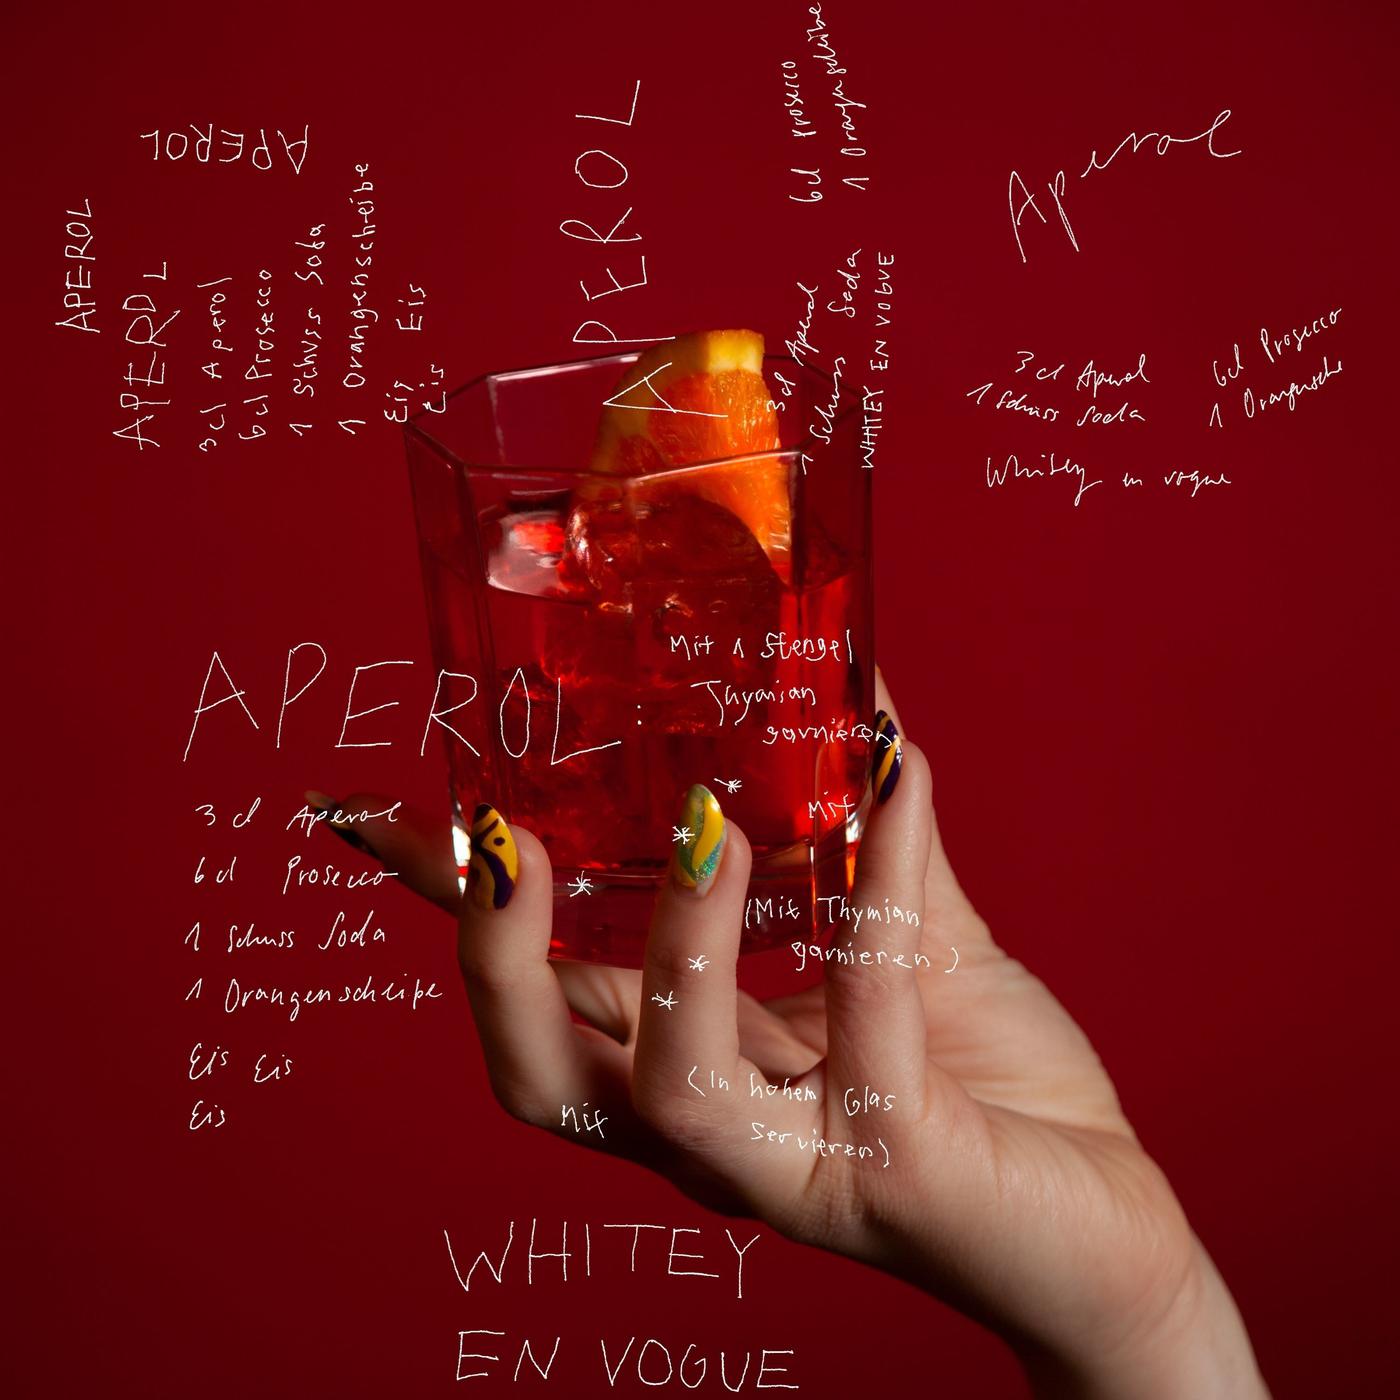 APEROL
APEROL
APEROL
3 cl Aperol
6 cl Prosecco
1 Schuss Soda
1 Orangenscheibe
Eis Eis
Eis
APEROL
3 cl Aperol 6cl Prosecco
1 Schuss Soda 1 Orangenscheibe
WHITEY EN VOGUE
Aperol
3 cl Aperol 6cl Prosecco
1 Schuss Soda 1 Orangensche
Whitey en vogue
APEROL :
3 cl Aperol
6 cl Prosecco
1 Schuss Soda
1 Orangenscheipe
Eis Eis
Eis
Mit 1 Stengel
Thymian
garnieren
Mit
(Mit Thymian
garnieren)
(In hohem Glas
servieren)
Mit
WHITEY
EN VOGUE